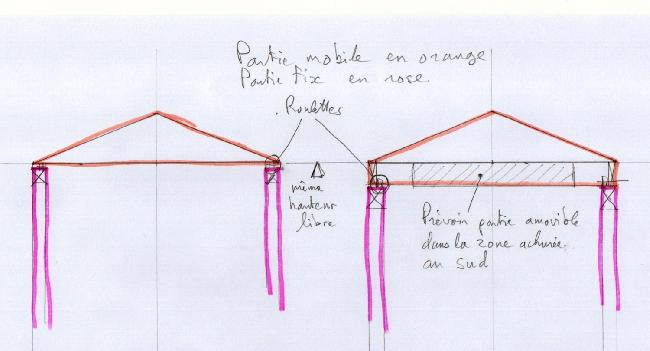 Partie mobile en orange
Partie fix en rose.
Roulettes
même
hauteur
libre
Prévoir partie amovible
dans la zone achurée.
au sud